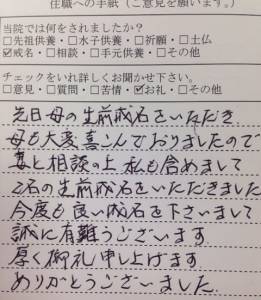 住職への手紙(ご意見を願います。)
当院では何をされましたか?
□先祖供養・□水子供養・□祈願・□土仏
☑戒名・□相談・□手元供養・□その他
チェックをいれ詳しくお聞かせ下さい。
□意見・□質問・□苦情・☑お礼・□その他
先日母の生前戒名をいただき
母も大変喜こんでおりましたので
妻と相談の上 私も含めまして
2名の生前戒名をいただきました
今度も良い戒名を下さいまして
誠に有難うございます
厚く御礼申し上げます
ありがとうございました.